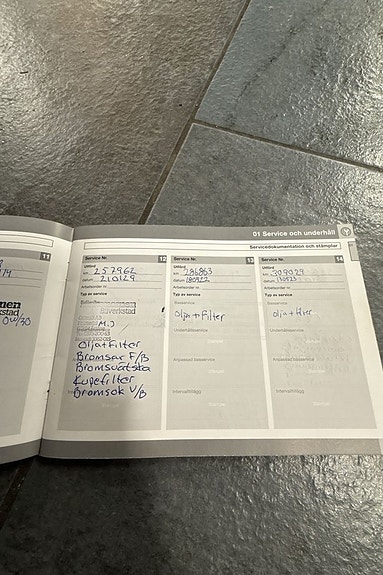 01 Service och underhåll
Servicedokumentation och stämplar
11
Service Nr. 12
Utförd
km 257962
datum 210129
Arbetsorder nr
Typ av service
Bilverkstad
M.J
Olja+Filter
Bromsar F/B
Bromsvätska
Kupefilter
Bromsok V/B
Service Nr. 13
Utförd
km 286863
datum
Arbetsorder nr
Typ av service
Basservice
Olja+Filter
Underhållsservice
Anpassad basservice
Intervalltillägg
Service Nr. 14
Utförd
km 309029
datum
Arbetsorder nr
Typ av service
Basservice
olja+filter
Underhållsservice
Anpassad basservice
Intervalltillägg